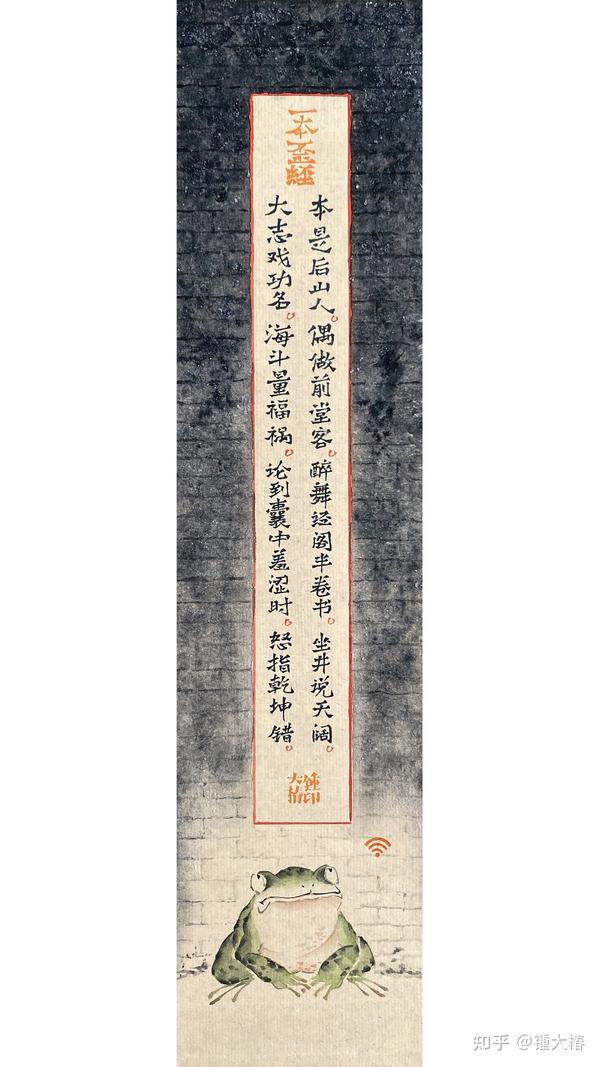 一本歪經
本是后山人。偶做前堂客。醉舞经阁半卷书。坐井说天阔。
大志戏功名。海斗量福祸。论到囊中羞涩时。怒指乾坤错。
鍾印
大椿
知乎 @锺大椿